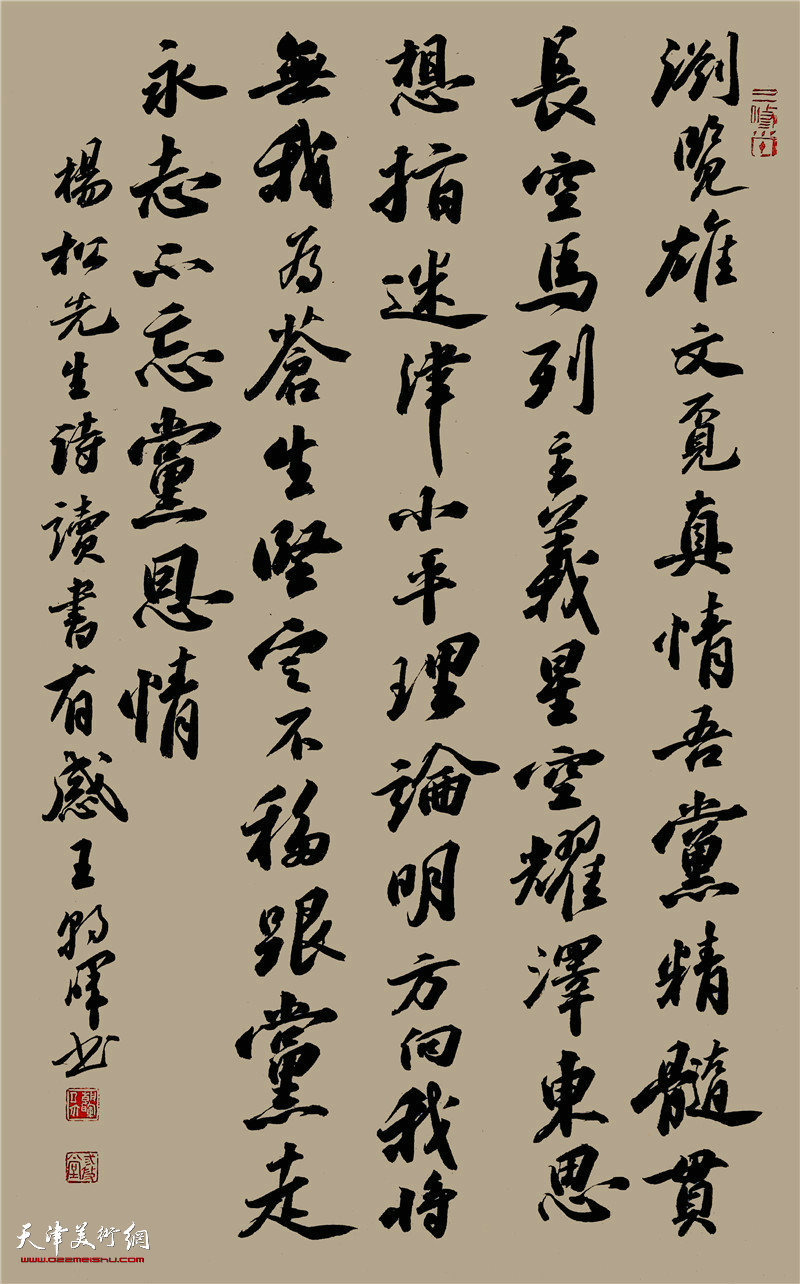 浏覽雄文覔真情吾黨精髓貫
長空馬列主義星空耀澤東思
想指迷津小平理論明方向我将
無我為蒼生堅定不移跟黨走
永志不忘黨恩情
楊松先生诗讀書有感王朝暉书
天津美術網
www.022meishu.com